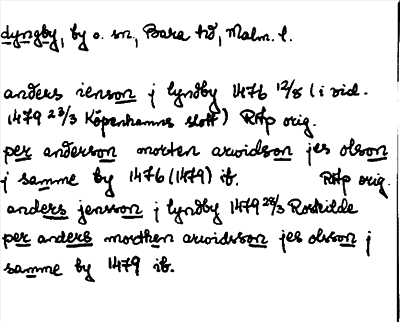 dyngby, by o. sn, Bara hd, Malm. l.
anders ienson j lyndby 1476 12/8 (i vid.
1479 23/3 Köpenhamns slott) RAp orig.
per anderson morten arvidson jes olson
j samme by 1476 (1479) ib. RAp orig.
anders jensson j lyndby 1479 28/3 Roskilde
per anders morthen arvidsson jes olsson j
samme by 1479 ib.